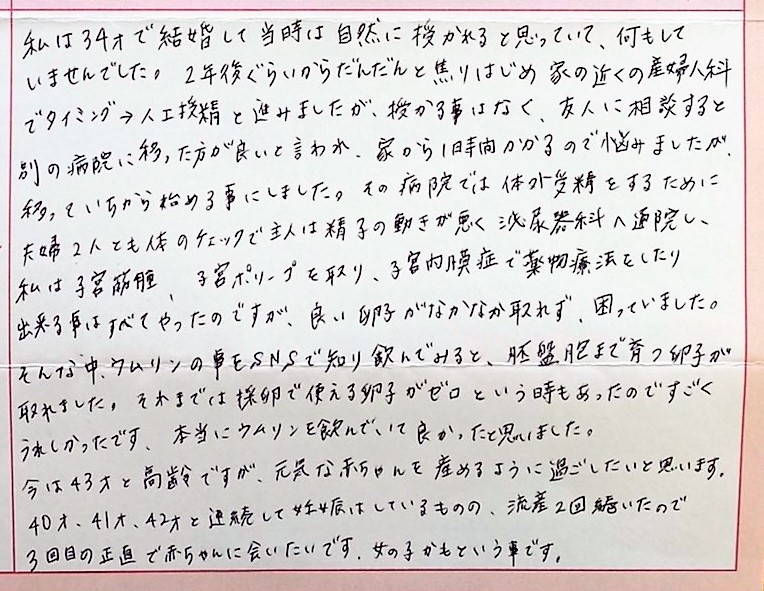 私は34才で結婚して当時は自然に授かれると思っていて、何もして
いませんでした。2年後ぐらいからだんだんと焦りはじめ家の近くの産婦人科
でタイミング→人工授精と進みましたが、授かる事はなく、友人に相談すると
別の病院に移った方が良いと言われ、家から1時間かかるので悩みましたが、
移っていちから始める事にしました。その病院では体外受精をするために
夫婦2人とも体のチェックで主人は精子の動きが悪く泌尿器科へ通院し、
私は子宮筋腫、子宮ポリープを取り、子宮内膜症で薬物療法をしたり
出来る事はすべてやったのですが、良い卵子がなかなか取れず、困っていました。
そんな中、ウムリンの事をSNSで知り飲んでみると、胚盤胞まで育つ卵子が
取れました。それまでは採卵で使える卵子がゼロという時もあったのですごく
うれしかったです、本当にウムリンを飲んでいて良かったと思いました。
今は43才と高齢ですが、元気な赤ちゃんを産めるように過ごしたいと思います。
40才、41才、42才と連続して妊娠はしているものの、流産2回続いたので
3回目の正直で赤ちゃんに会いたいです、女の子かもという事です。